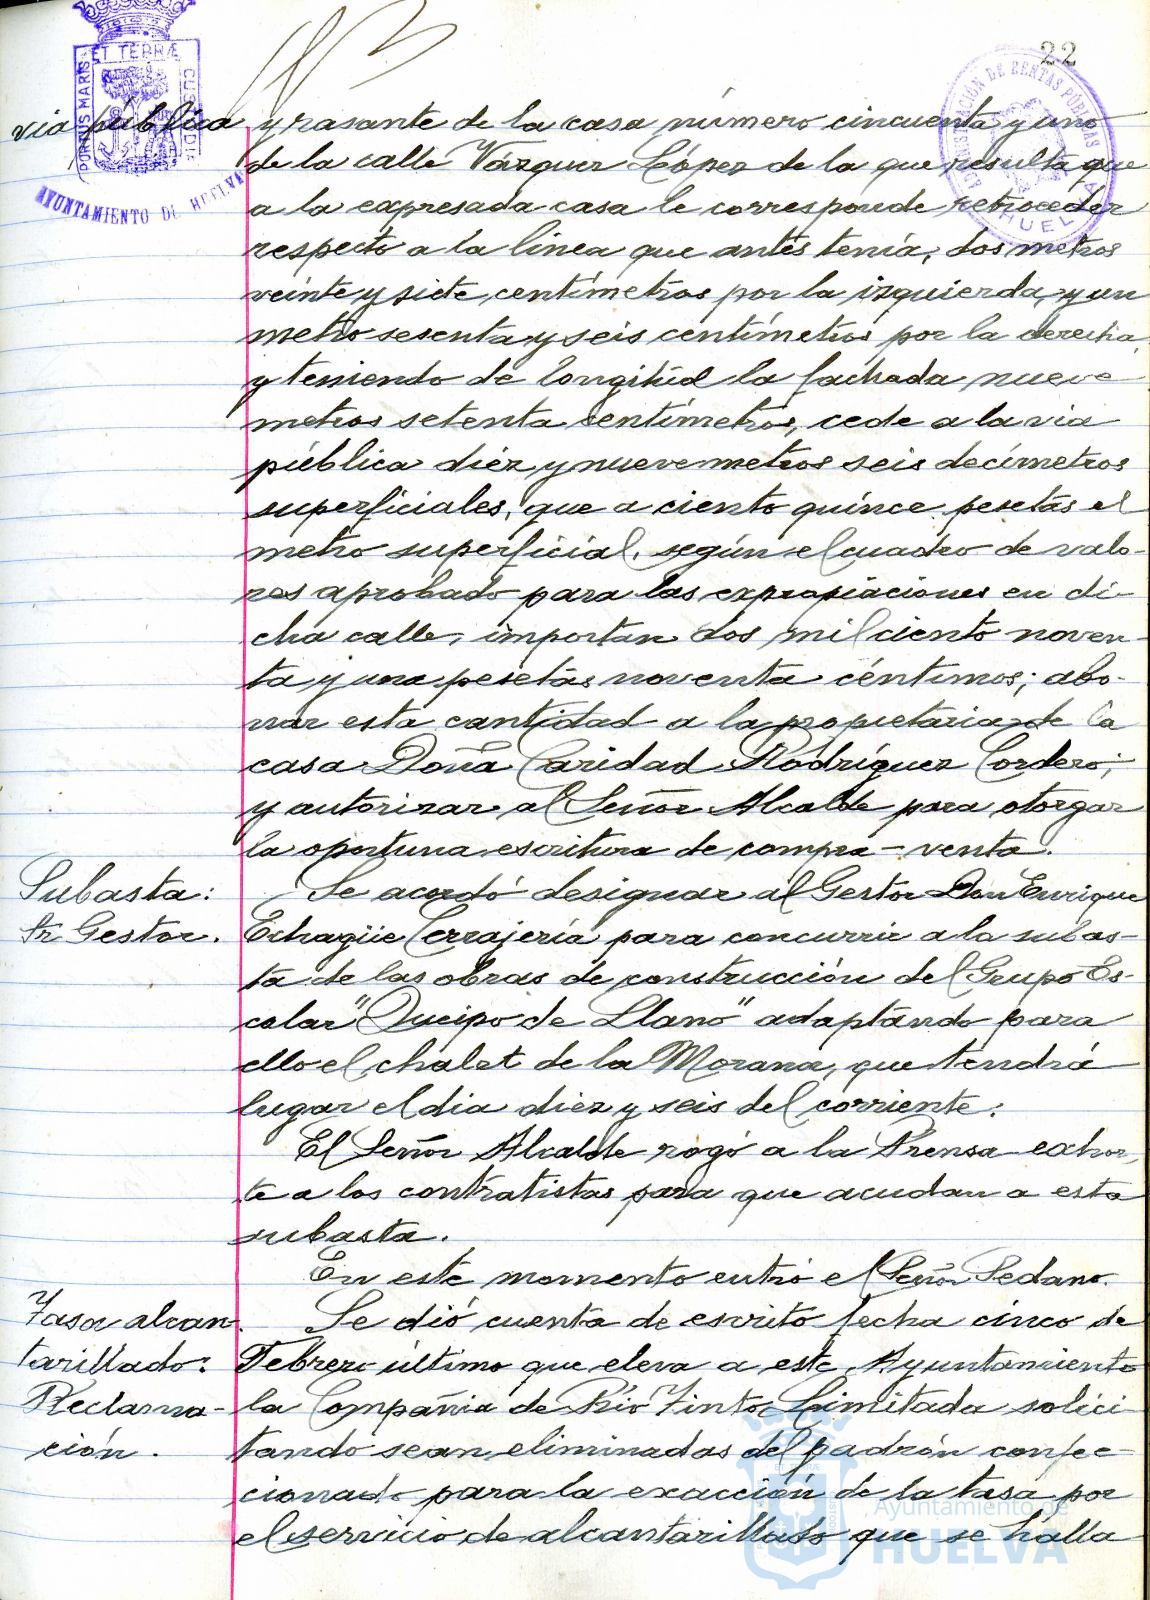 22
PORTUS MARIS ET TERRÆ CUSTODIA
AYUNTAMIENTO DE HUELVA
ADMINISTRACIÓN DE RENTAS PÚBLICAS
HUELVA
via pública
y rasante de la casa número cincuenta y uno
de la calle Vázquez López de la que resulta que
a la expresada casa le corresponde retroceder
respecto a la línea que antes tenía, dos metros
veinte y siete centímetros por la izquierda, y un
metro sesenta y seis centímetros por la derecha,
y teniendo de longitud la fachada nueve
metros setenta centímetros, cede a la via
pública diez y nueve metros seis decímetros
superficiales, que a ciento quince pesetas el
metro superficial, según el cuadro de valo-
res aprobado para las expropiaciones en di-
cha calle, importan dos mil ciento noven-
ta y una pesetas noventa céntimos; abo-
nar esta cantidad a la propietaria de la
casa Doña Caridad Rodríguez Cordero;
y autorizar al Señor Alcalde para otorgar
la oportuna escritura de compra-venta.
Subasta:
Sr Gestor.
Se acordó designar al Gestor Don Enrique
Echagüe Cerrajería para concurrir a la subas-
ta de las obras de construcción del Grupo Es-
colar "Queipo de Llano" adaptando para
ello el chalet de la Morana, que tendrá
lugar el dia diez y seis del corriente.
El Señor Alcalde rogó a la Prensa exhor-
te a los contratistas para que acudan a esta
subasta.
En este momento entró el Señor Sedano.
Tasa alcan-
tarillado:
Reclama-
ción.
Se dió cuenta de escrito fecha cinco de
Febrero último que eleva a este Ayuntamiento
la Compañia de Rio Tinto Limitada solici
tando sean eliminadas del padrón confec-
cionado para la exacción de la tasa por
el servicio de alcantarillado que se halla
Ayuntamiento de
HUELVA